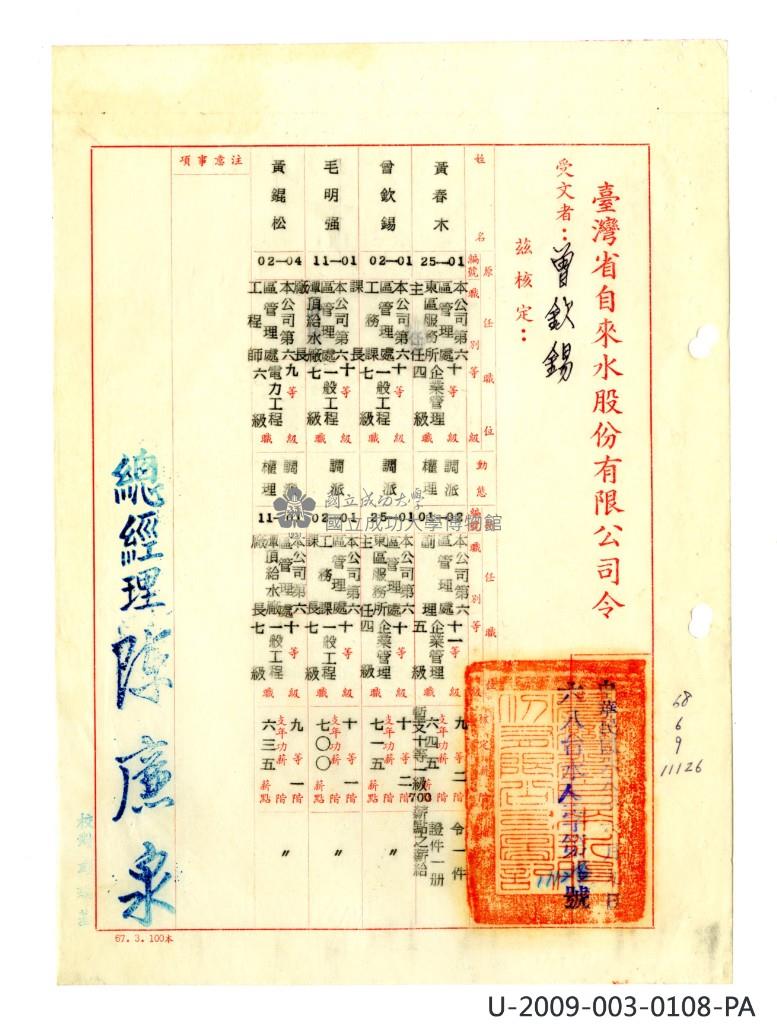 臺灣省自來水股份有限公司令
受文者：曾欽錫
茲核定：
中華民國
六八台水人字第 號
11126
68
6
9
11126
姓名
編號
原任職位
職別等級
動態
核定薪階
黃春木
25—01
本公司第六區管理處東區服務所主任
十等企業管理四級
職級
調派
權理
01—02
本公司第六區管理處副理
十一等企業管理五級
九等二階
六四五薪點
暫支十等一級700薪點之薪給
令一件
證件一册
曾欽錫
02—01
本公司第六區管理處工務課課長
十等一般工程七級
職級
調派
25—01
本公司第六區管理處東區服務所主任
十等企業管理四級
十等二階
支年功薪七一五薪點
〃
毛明强
11—01
本公司第六區管理處潭頂給水廠廠長
十等一般工程七級
職級
調派
02—01
本公司第六區管理處工務課課長
十等一般工程七級
十等一階
支年功薪七〇〇薪點
〃
黃錕松
02—04
本公司第六區管理處工程師
九等電力工程六級
職級
調派
權理
11—01
本公司第六區管理處潭頂給水廠廠長
十等一般工程七級
職級
九等一階
支年功薪六三五薪點
〃
注意事項
總經理陳廉泉
校對
67.3.100本
國立成功大學
國立成功大學博物館
U-2009-003-0108-PA